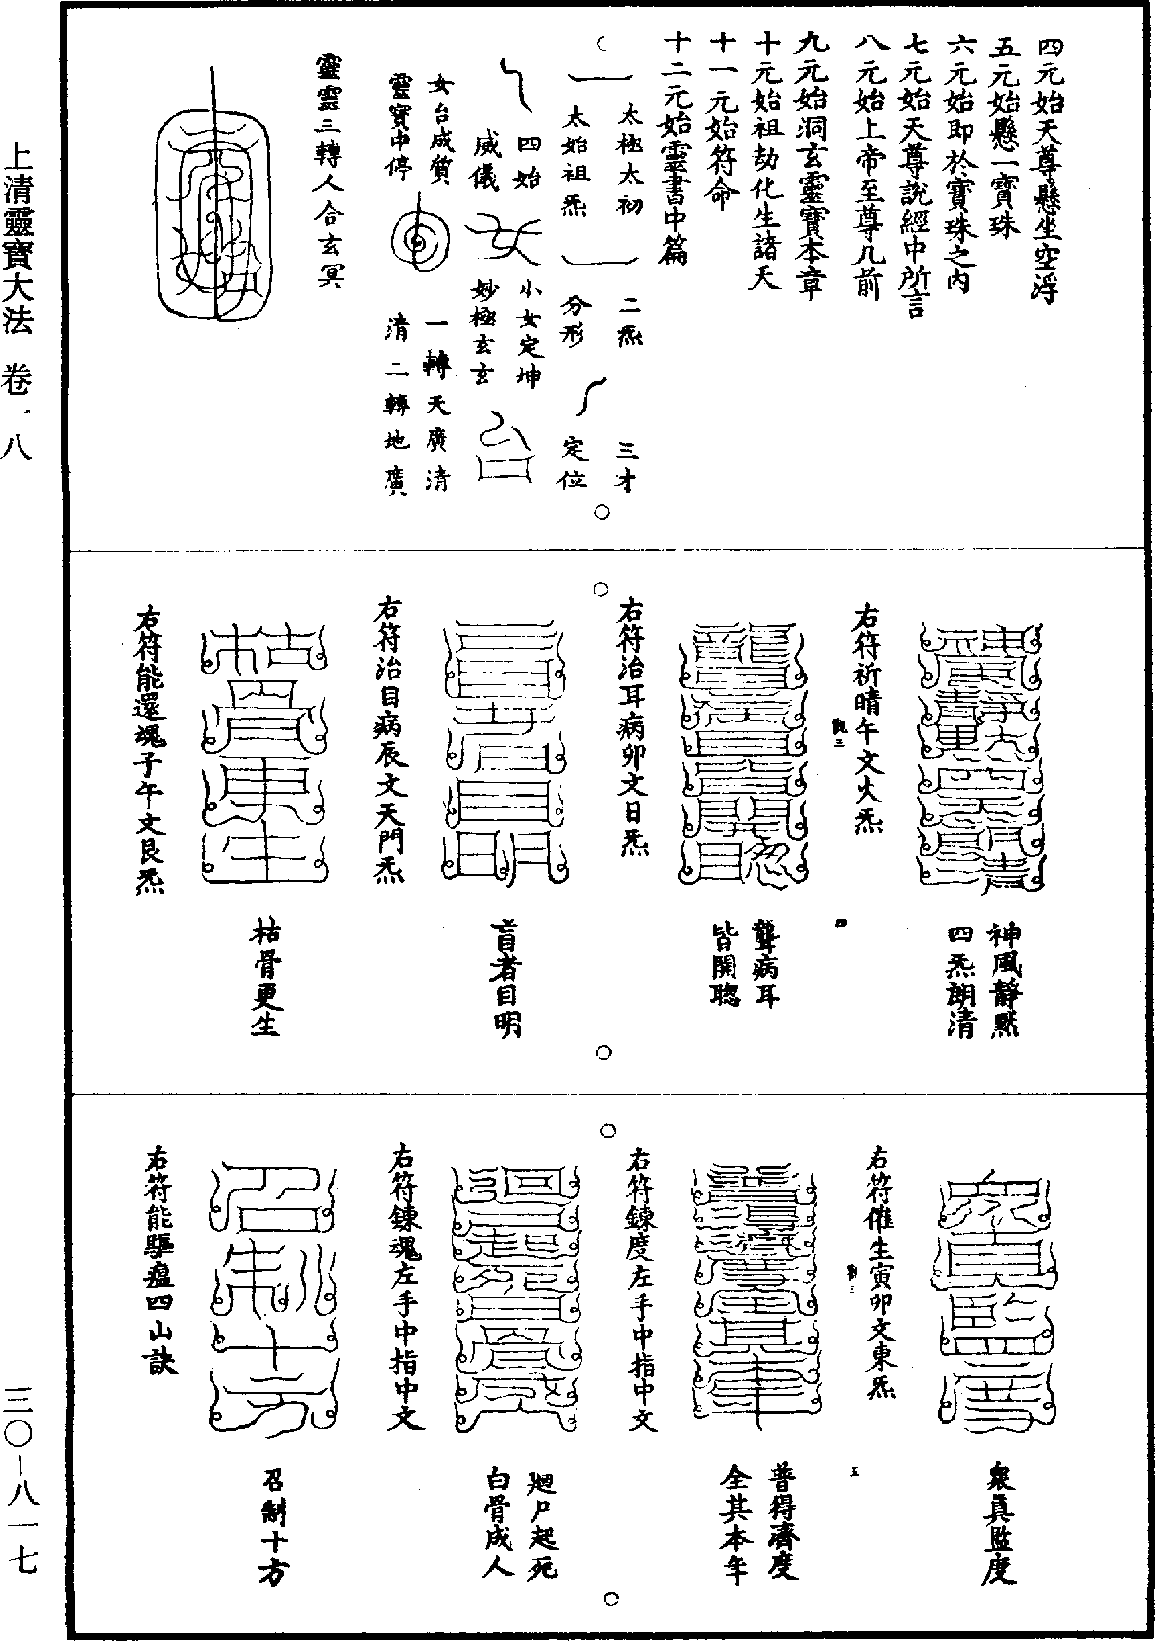 四元始天尊懸坐空浮
五元始懸一寶珠
六元始即於寶珠之內
七元始天尊說經中所言
八元始上帝至尊几前
九元始洞玄靈寶本章
十元始祖劫化生諸天
十一元始符命
十二元始靈書中篇
太極太初
太始祖炁
二炁
分形
三才
定位
四始
威儀
小女定坤
妙極玄玄
女台成質
靈寶中停
一轉天廣清
清二轉地廣
靈雲三轉人合玄冥
神風靜默
四炁朗清
右符祈晴午文火炁
聾病耳
皆開聰
右符治耳病卯文日炁
盲者目明
右符治目病辰文天門炁
枯骨更生
右符能還魂子午文艮炁
衆真監度
右符催生寅卯文東炁
普得濟度
全其本年
右符鍊度左手中指中文
迴尸起死
白骨成人
右符鍊魂左手中指中文
召制十方
右符能驅瘟四山訣
上清靈寶大法 卷一八
三〇-八一七